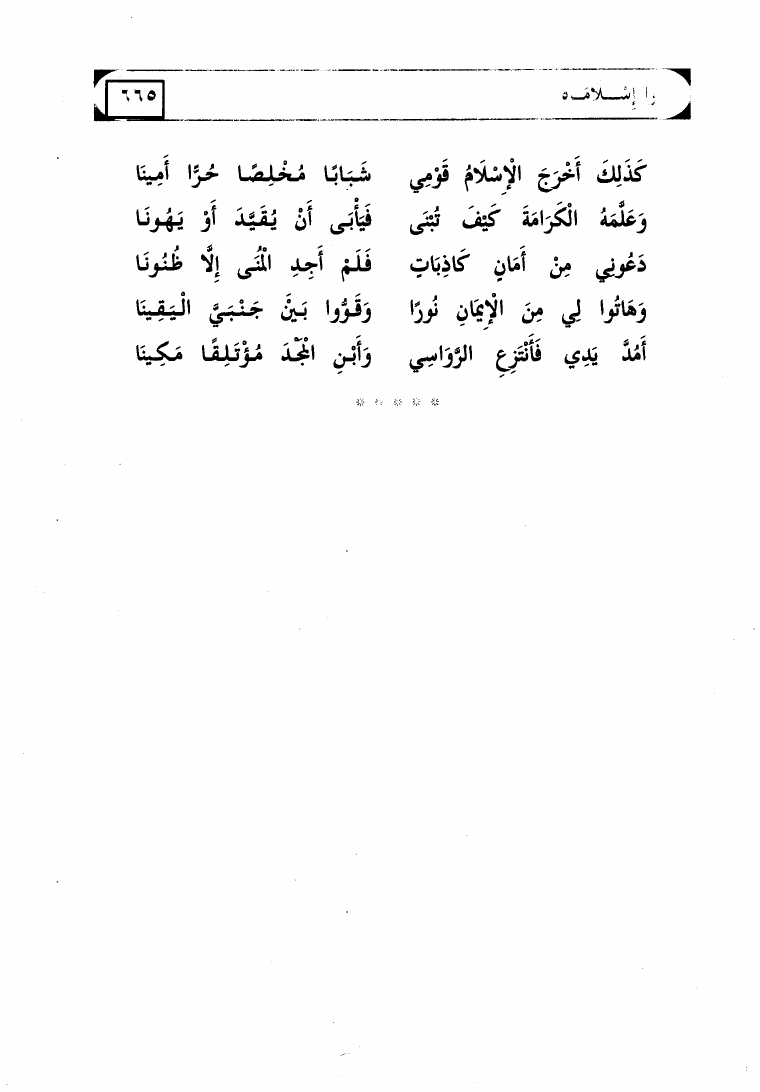 وا إسـلامـاه ٦٦٥
كَذَلِكَ أَخْرَجَ الْإِسْلَامُ قَوْمِي شَبَابًا مُخْلِصًا حُرًّا أَمِينَا
وَعَلَّمَهُ الْكَرَامَةَ كَيْفَ تُبْنَى فَيَأْبَى أَنْ يُقَيَّدَ أَوْ يَهُونَا
دَعُونِي مِنْ أَمَانٍ كَاذِبَاتٍ فَلَمْ أَجِدِ الْمُنَى إِلَّا ظُنُونَا
وَهَاتُوا لِي مِنَ الْإِيمَانِ نُورًا وَقَوُّوا بَيْنَ جَنْبَيَّ الْيَقِينَا
أَمُدَّ يَدِي فَأَنْتَزِعِ الرَّوَاسِي وَأَبْنِ الْمَجْدَ مُؤْتَلِقًا مَكِينَا
* * * * *